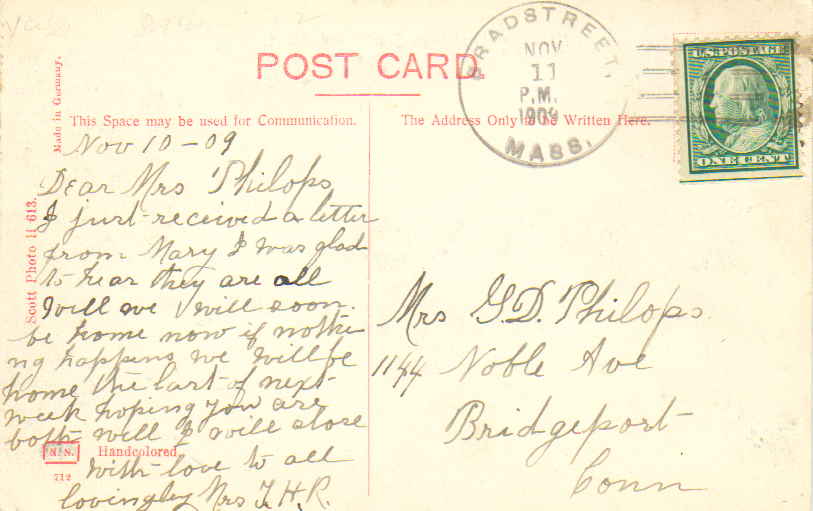 POST CARD
BRADSTREET
NOV
11
P.M.
1909
MASS.
U.S. POSTAGE
ONE CENT
Made in Germany.
Scott Photo 11 613.
This Space may be used for Communication.
The Address Only to be Written Here.
Nov 10 - 09
Dear Mrs Philops
I just received a letter
from Mary I was glad
to hear they are all
well we will soon
be home now if nothi
ng happens we will be
home the last of next
week hoping you are
both well I will close
with love to all
lovingley Mrs T.H.R.
Handcolored.
712
Mrs G.D. Philops
1144 Noble Ave
Bridgeport
Conn